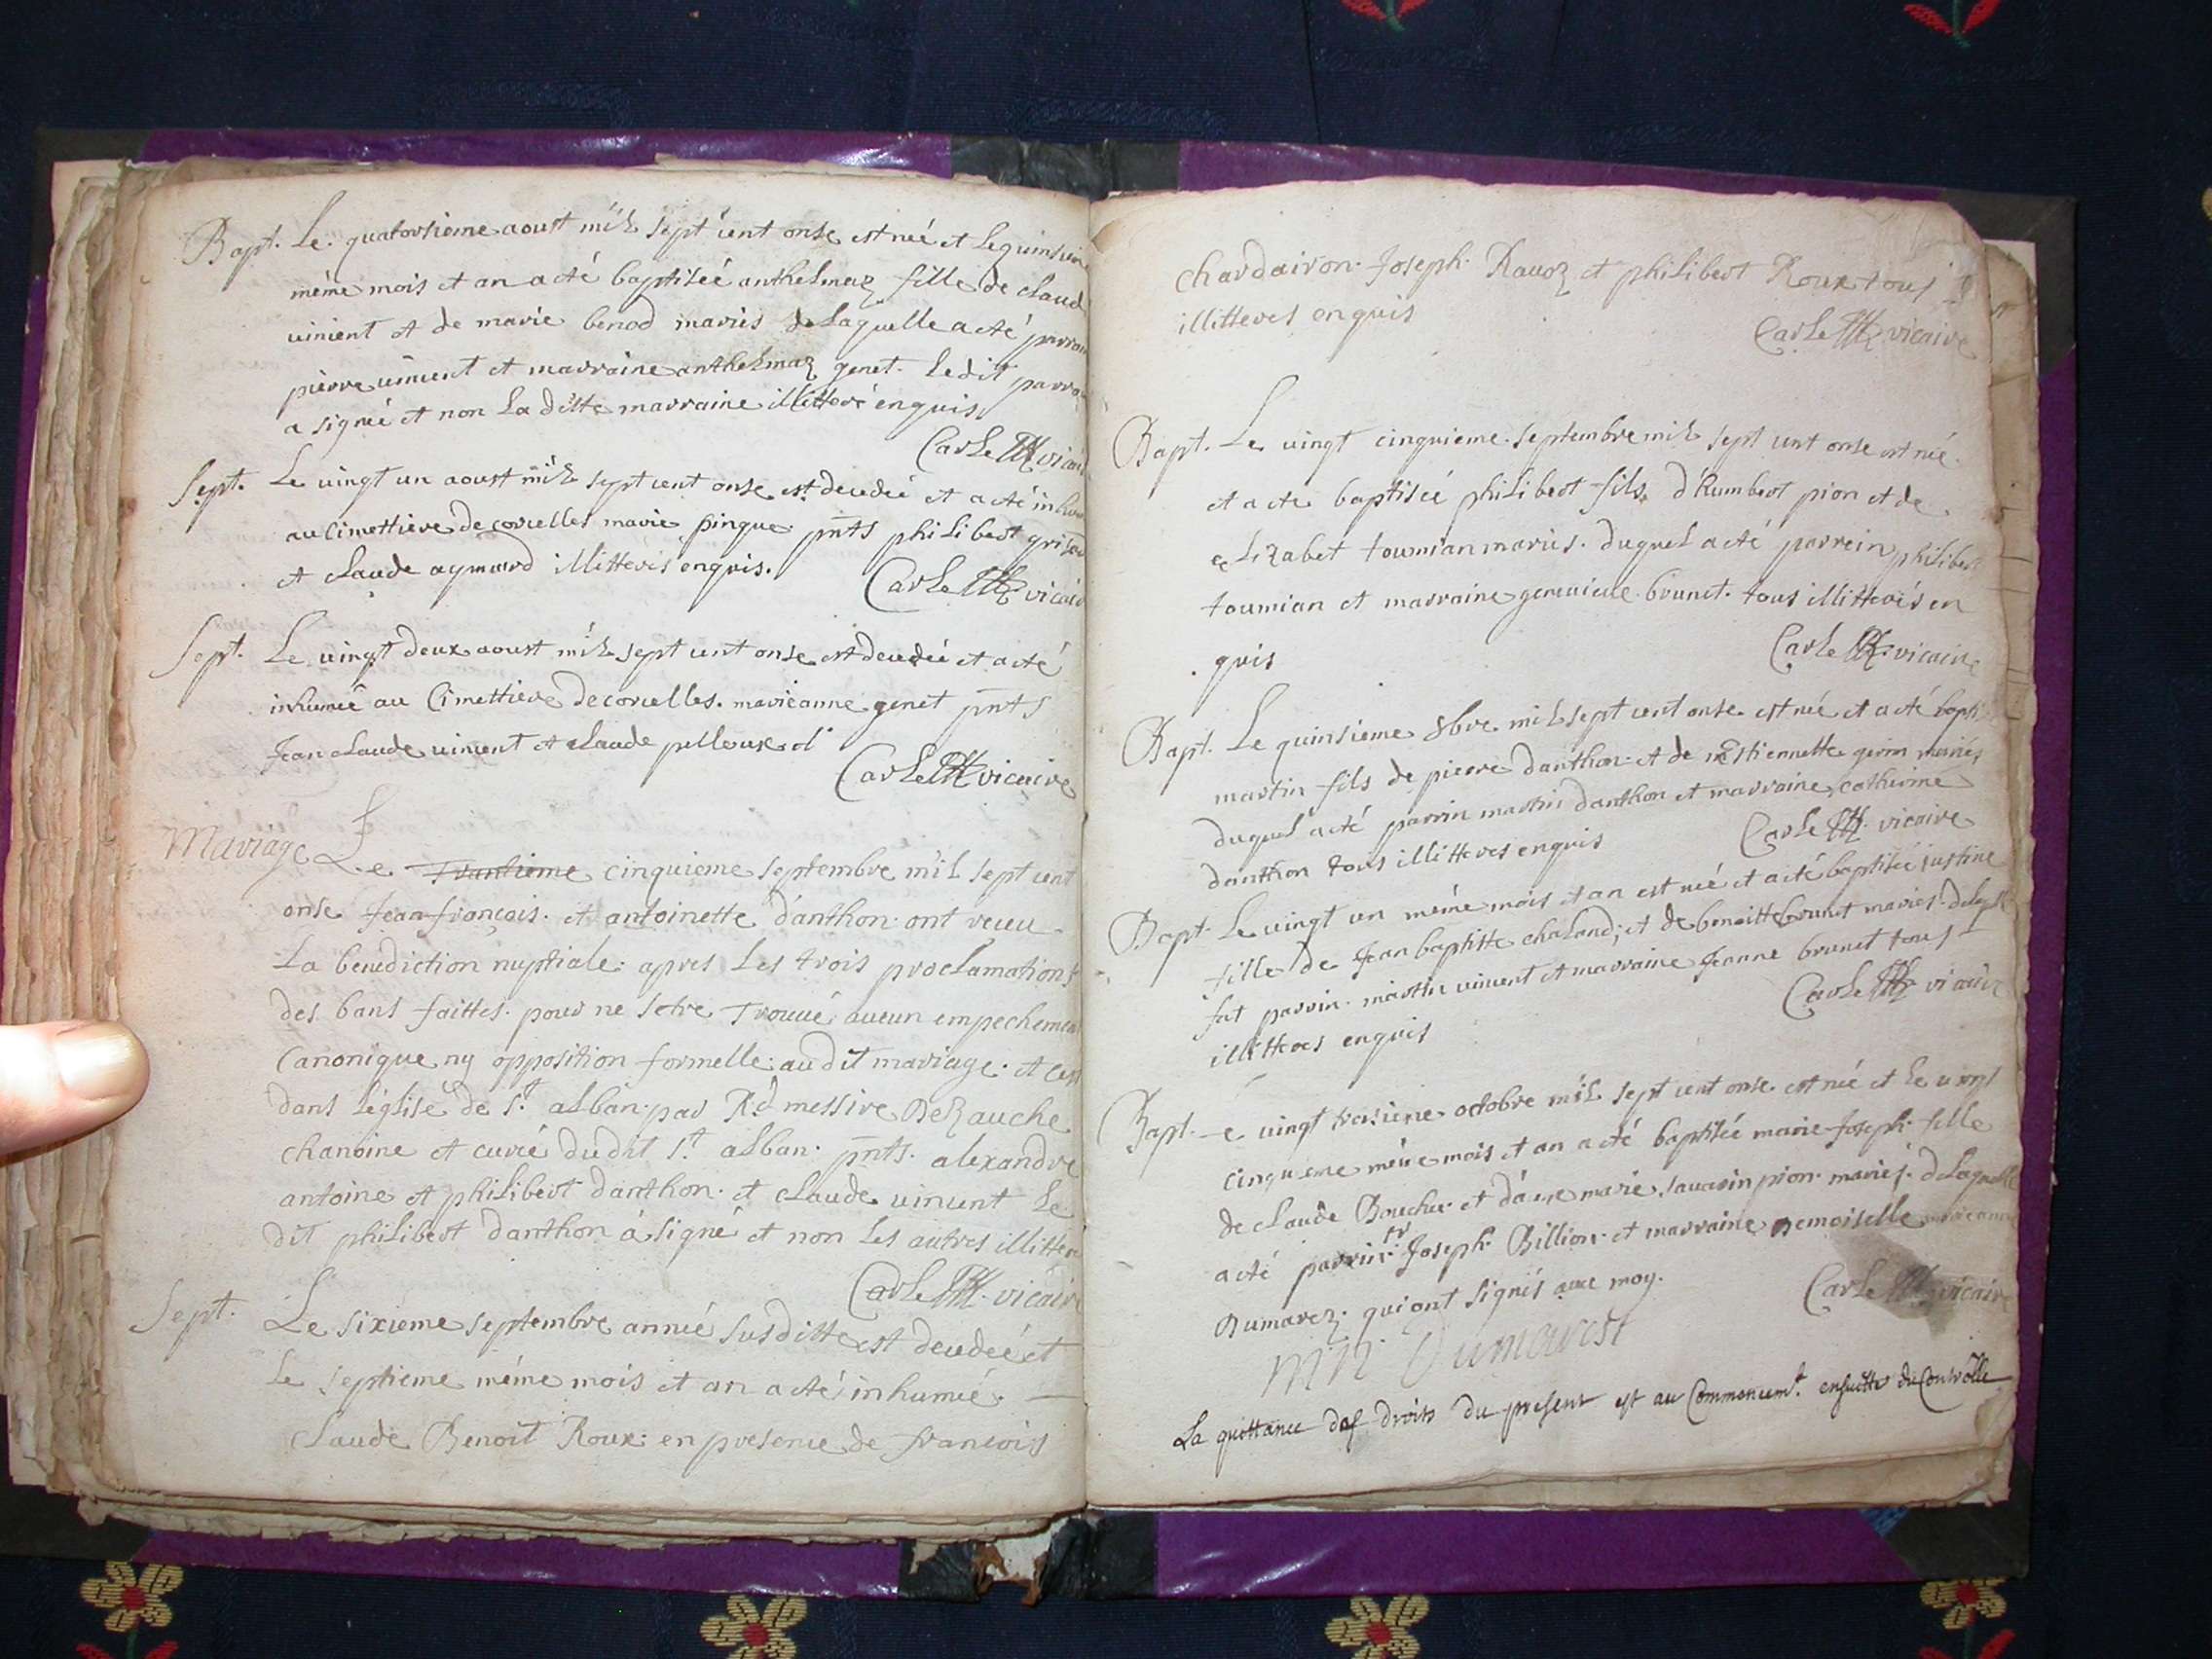 Bapt. Le quatorsieme aoust mil sept cent onse est née et le quinsiem
même mois et an a eté baptiseé anthelmaz fille de claud
vincent et de marie benod mariés de laquelle a eté parrain
pierre vincent et marraine anthelmaz genet. Ledit parra
a signé et non la ditte marraine illitteré enquis
Carle vicair
Sept. Le vingt un aoust mil sept cent onse est decedeé et a eté inhu
au cimettiere de corcelles marie pingue pnts philibert
et claude aymard illitterés enquis.
Carle vicair
Sept. Le vingt deux aoust mil sept cent onse est decedeé et a eté
inhumeé au cimettiere de corcelles. marieanne genet pnts
Jean claude vincent et claude pelloux
Carle vicaire
Mariage Le trantieme cinquieme septembre mil sept cent
onse Jean françois. et antoinette danthon ont receu
La benediction nuptiale apres Les trois proclamations
des bans faittes. pour ne setre trouvé aucun empechemen
canonique ny opposition formelle audit mariage. et
dans léglise de St. alban par Rd messire Dezauche
chanoine et curé dudit St. alban pnts. alexandre
antoine et philibert danthon et claude vincent Le
dit philibert danthon á signé et non Les autres illitteré
Carle vicair
Sept. Le sixieme septembre anneé susditte est decedeé et
Le septieme méme mois et an a eté inhumé. —
claude Benoit Roux en presence de francois
chardairon. Joseph. Ravoz et philibert Roux tous
illitteres enquis
Carle vicaire
Bapt. Le vingt cinquieme septembre mil sept cent onse est né
et a eté baptiseé philibert fils d'humbert pion et de
elizabet toumian mariés. duquel a eté parrein philiber
toumian et marraine genevieve brunet. tous illitterés en
quis
Carle vicaire
Bapt. Le quinsieme 8bre mil sept cent onse est née et a eté bapti
martin fils de pierre danthon et de Estiennette mariés
duquel a eté parrin martin danthon et marraine catherine
danthon tous illitteres enquis
Carle vicaire
Bapt. Le vingt un méme mois et an est née et a eté baptiseé justine
fille de Jean baptiste chaland, et de benoitte brunet mariés
fut parrin martin vincent et marraine Jeanne brunet tous
illitteres enquis
Carle vicaire
Bapt. e vingt troisieme octobre mil sept cent onse est née et le vingt
cinquieme même mois et an a eté baptiseé marie Joseph fille
de claude Boucher et marie savarin pion mariés. de laquelle
a eté parrin Sr Joseph Billion et marraine Demoiselle marieanne
Dumarez. qui ont signés avec moy.
Carle vicaire
Dumarest
La quittance des droits du present est au Commencemt. ensuitte du Controlle